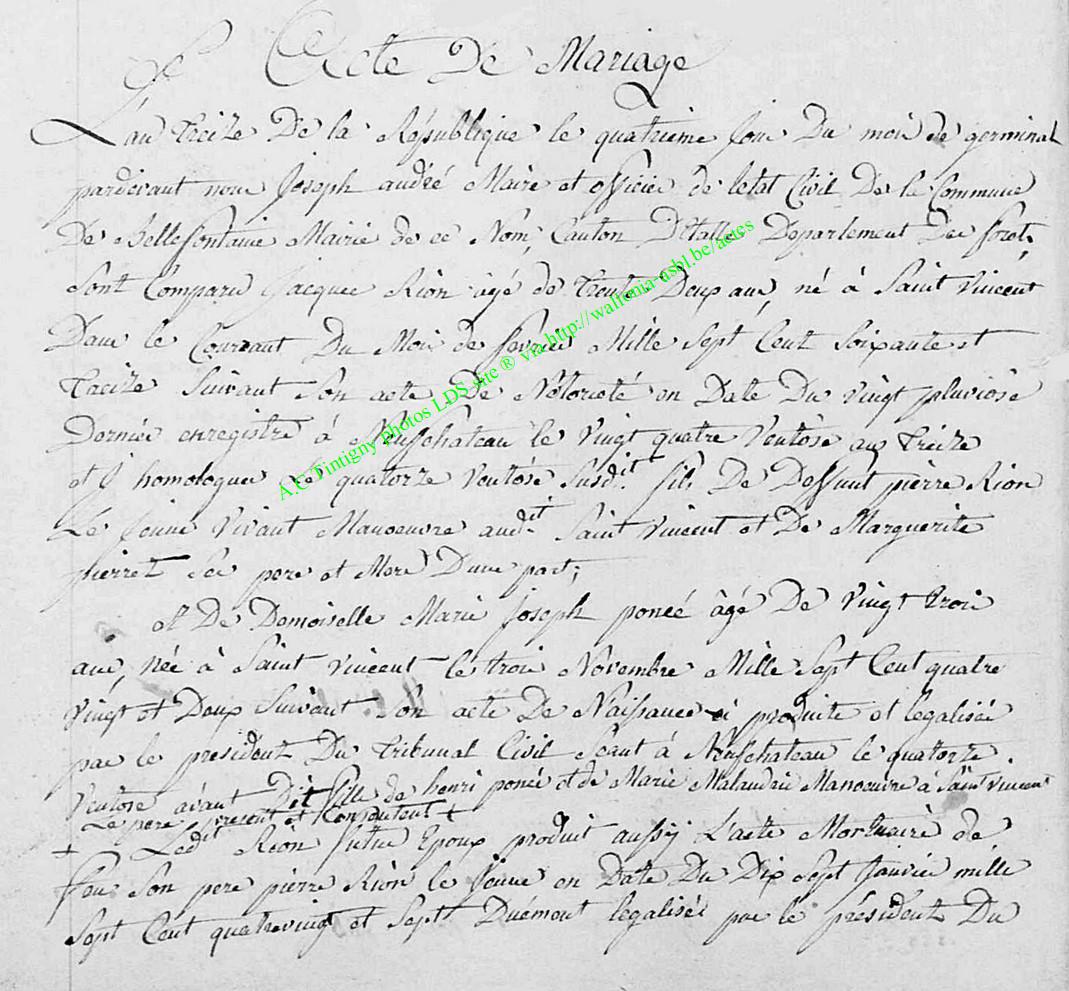 Acte De Mariage
L'an treize De la République le quatrieme jour Du mois de germinal
pardevant nous Joseph andré Maire et officier de letat Civil De la Commune
De Bellefontaine Mairie de ce Nom, Canton Détalle, Departement Des forets,
Sont Comparu Jacques Rion âgé de trente Deux ans, né à Saint Vincent
Dans le Courant Du Mois de fevrier Mille Sept Cent Soixante et
treize Suivant Son acte De Notorieté en Date Du Vingt pluviose
Dernier enregistré à Neufchateau le Vingt quatre Ventôse an treize
et y homologuer le quatorze Ventôse Susdit. fils De Deffunt pierre Rion
Le Jeune Vivant Manoeuvre audit Saint Vincent et De Marguerite
pierret Ses pere et Mere D'une part;
et De Demoiselle Marie Joseph poncé âgé De Vingt trois
ans, née à Saint Vincent le trois Novembre Mille Sept Cent quatre
Vingt et Deux Suivant Son acte De Naissance si produite et legalisée
par le president Du tribunal Civil Seant à Neufchateau le quatorze
Ventose avant Dit fille de henri poncé et de Marie Malaudrie Manoeuvre à Saint Vincent
Le pere present et Consentent +
+ Ledit Rion futur Epoux produit aussy L'acte Mortuaire de
feu Son pere pierre Rion le Jeune en Date Du Dix Sept Janvier mille
Sept Cent quatrevingt et Sept Duëmont legalisée par le président Du
A.C Tintigny photos LDS site ® via http://wallonia-asbl.be/actes